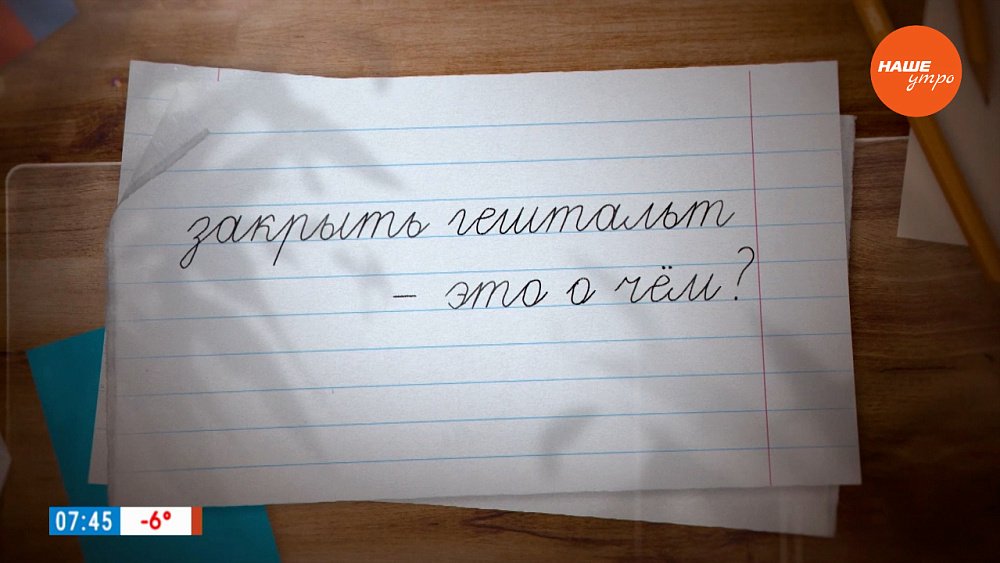 НАШЕ
утро
закрыть гештальт
- это о чём?
07:45 -6°